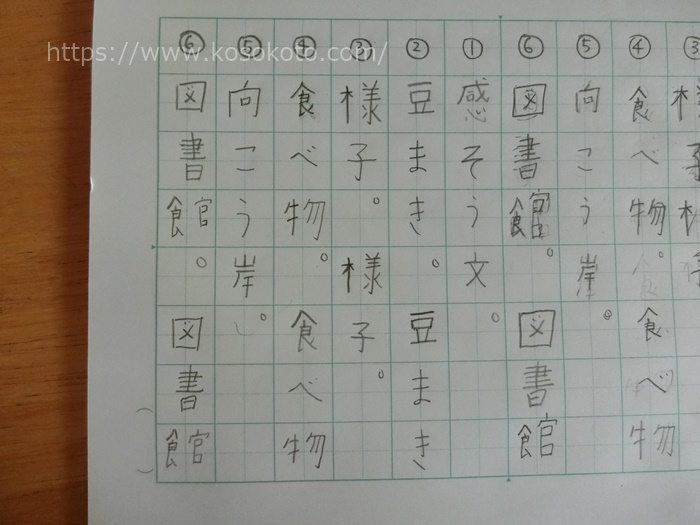 https://www.kosokoto.com/
③様子
④食べ物。食べ物
⑤向こう岸。
⑥図書館。図書館
①感そう文。
②豆まき。豆まき
③様子。様子。
④食べ物。食べ物
⑤向こう岸。
⑥図書館。図書館